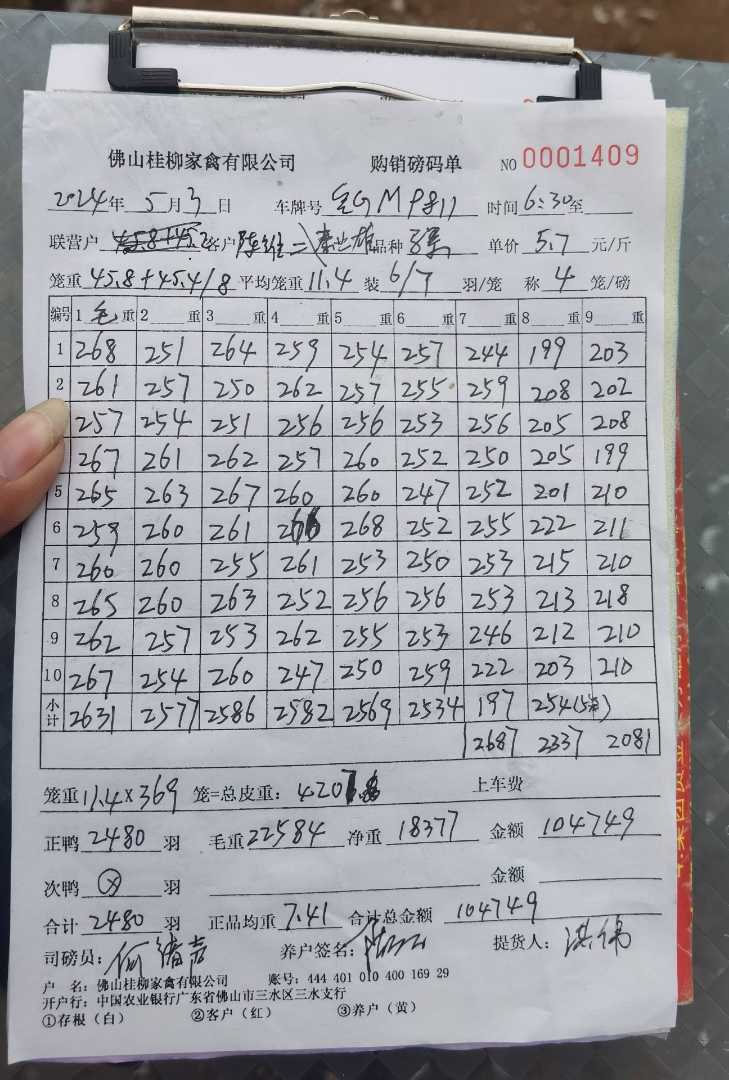 佛山桂柳家禽有限公司 购销磅码单 NO 0001409
2024年 5月 3日 车牌号 GMP811 时间 6:30至
联营户 客户 陈维二 秦世雄 品种 单价 5.7 元/斤
笼重 45.8+45.4/8 平均笼重 11.4 装 6/7 羽/笼 称 4 笼/磅
编号 1 毛 重 2 重 3 重 4 重 5 重 6 重 7 重 8 重 9 重
1 268 251 264 259 254 257 244 199 203
2 261 257 250 262 257 255 259 208 202
257 254 251 256 256 253 256 205 208
267 261 262 257 260 252 250 205 199
5 265 263 267 260 260 247 252 201 210
6 259 260 261 266 268 252 255 222 211
7 260 260 255 261 253 250 253 215 210
8 265 260 263 252 256 256 253 213 218
9 262 257 253 262 255 253 246 212 210
10 267 254 260 247 250 259 222 203 210
小计 2631 2577 2586 2582 2569 2534 197 254(5笼)
2687 2337 2081
笼重 11.4×369 笼=总皮重: 4207 上车费
正鸭 2480 羽 毛重 22584 净重 18377 金额 104749
次鸭 羽 金额
合计 2480 羽 正品均重 7.41 合计总金额 104749
司磅员: 何 养户签名: 提货人: 洪伟
户 名: 佛山桂柳家禽有限公司 账号: 444 401 010 400 169 29
开户行: 中国农业银行广东省佛山市三水区三水支行
①存根(白) ②客户(红) ③养户(黄)